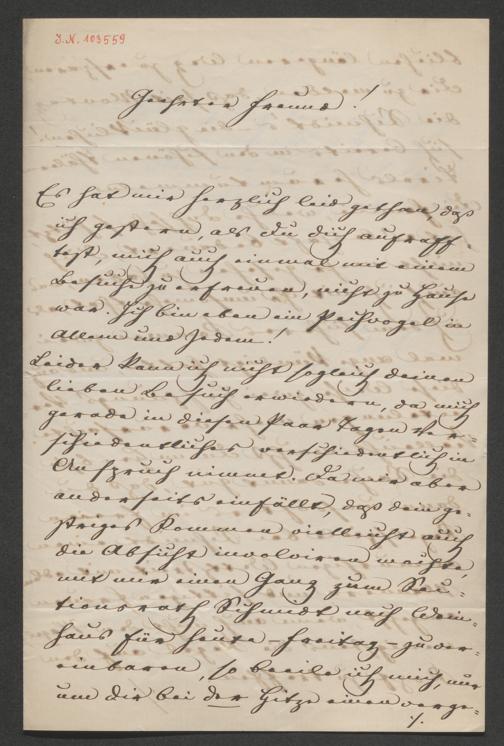 J.N. 103559
Geehrter Freund!
Es hat mir herzlich leid gethan, daß
ich gestern, als du dich aufraff-
test, mich auch einmal mit einem
Besuche zu erfreuen, nicht zu Hause
war. Ich bin eben ein Pechvogel in
Allem und Jedem!
Leider kann ich nicht sogleich deinen
lieben Besuch erwiedern, da mich
gerade in diesen Paar Tagen Ver-
schiedentliches verschiedentlich in
Anspruch nimmt. Da mir aber
anderseits einfällt, daß dein ge-
striges Kommen vielleicht auch
die Absicht involviren mochte,
mit mir einen Gang zum Sec-
tionsrath Schmidt nach Wein-
haus für heute – Freitag – zu ver-
einbaren, so beeile ich mich, nur
um dir bei der Hitze einen verge-
./.